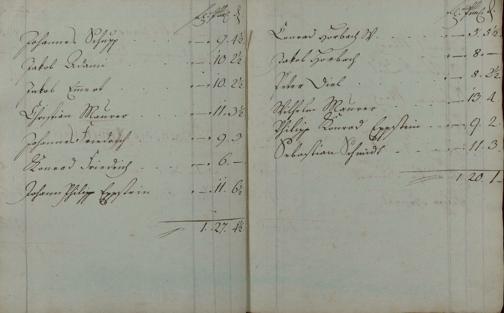 Johannes Schupp 9. 4½
Jakob Adami 10. 2½
Jakob Emmert 10. 2½
Christian Maurer 11. 3½
Johannes Friedrich 9. 3
Konrad Friedrich 6. —
Johann Philipp Eppstein 11. 6½
1. 27. 4½
Konrad Horbach 5. 5½
Jakob Horbach 8. —
Peter Diel 8. 2½
Wilhelm Maurer 13. 4
Philipp Konrad Eppstein 9. 2
Sebastian Schmidt 11. 3
1. 20. 1